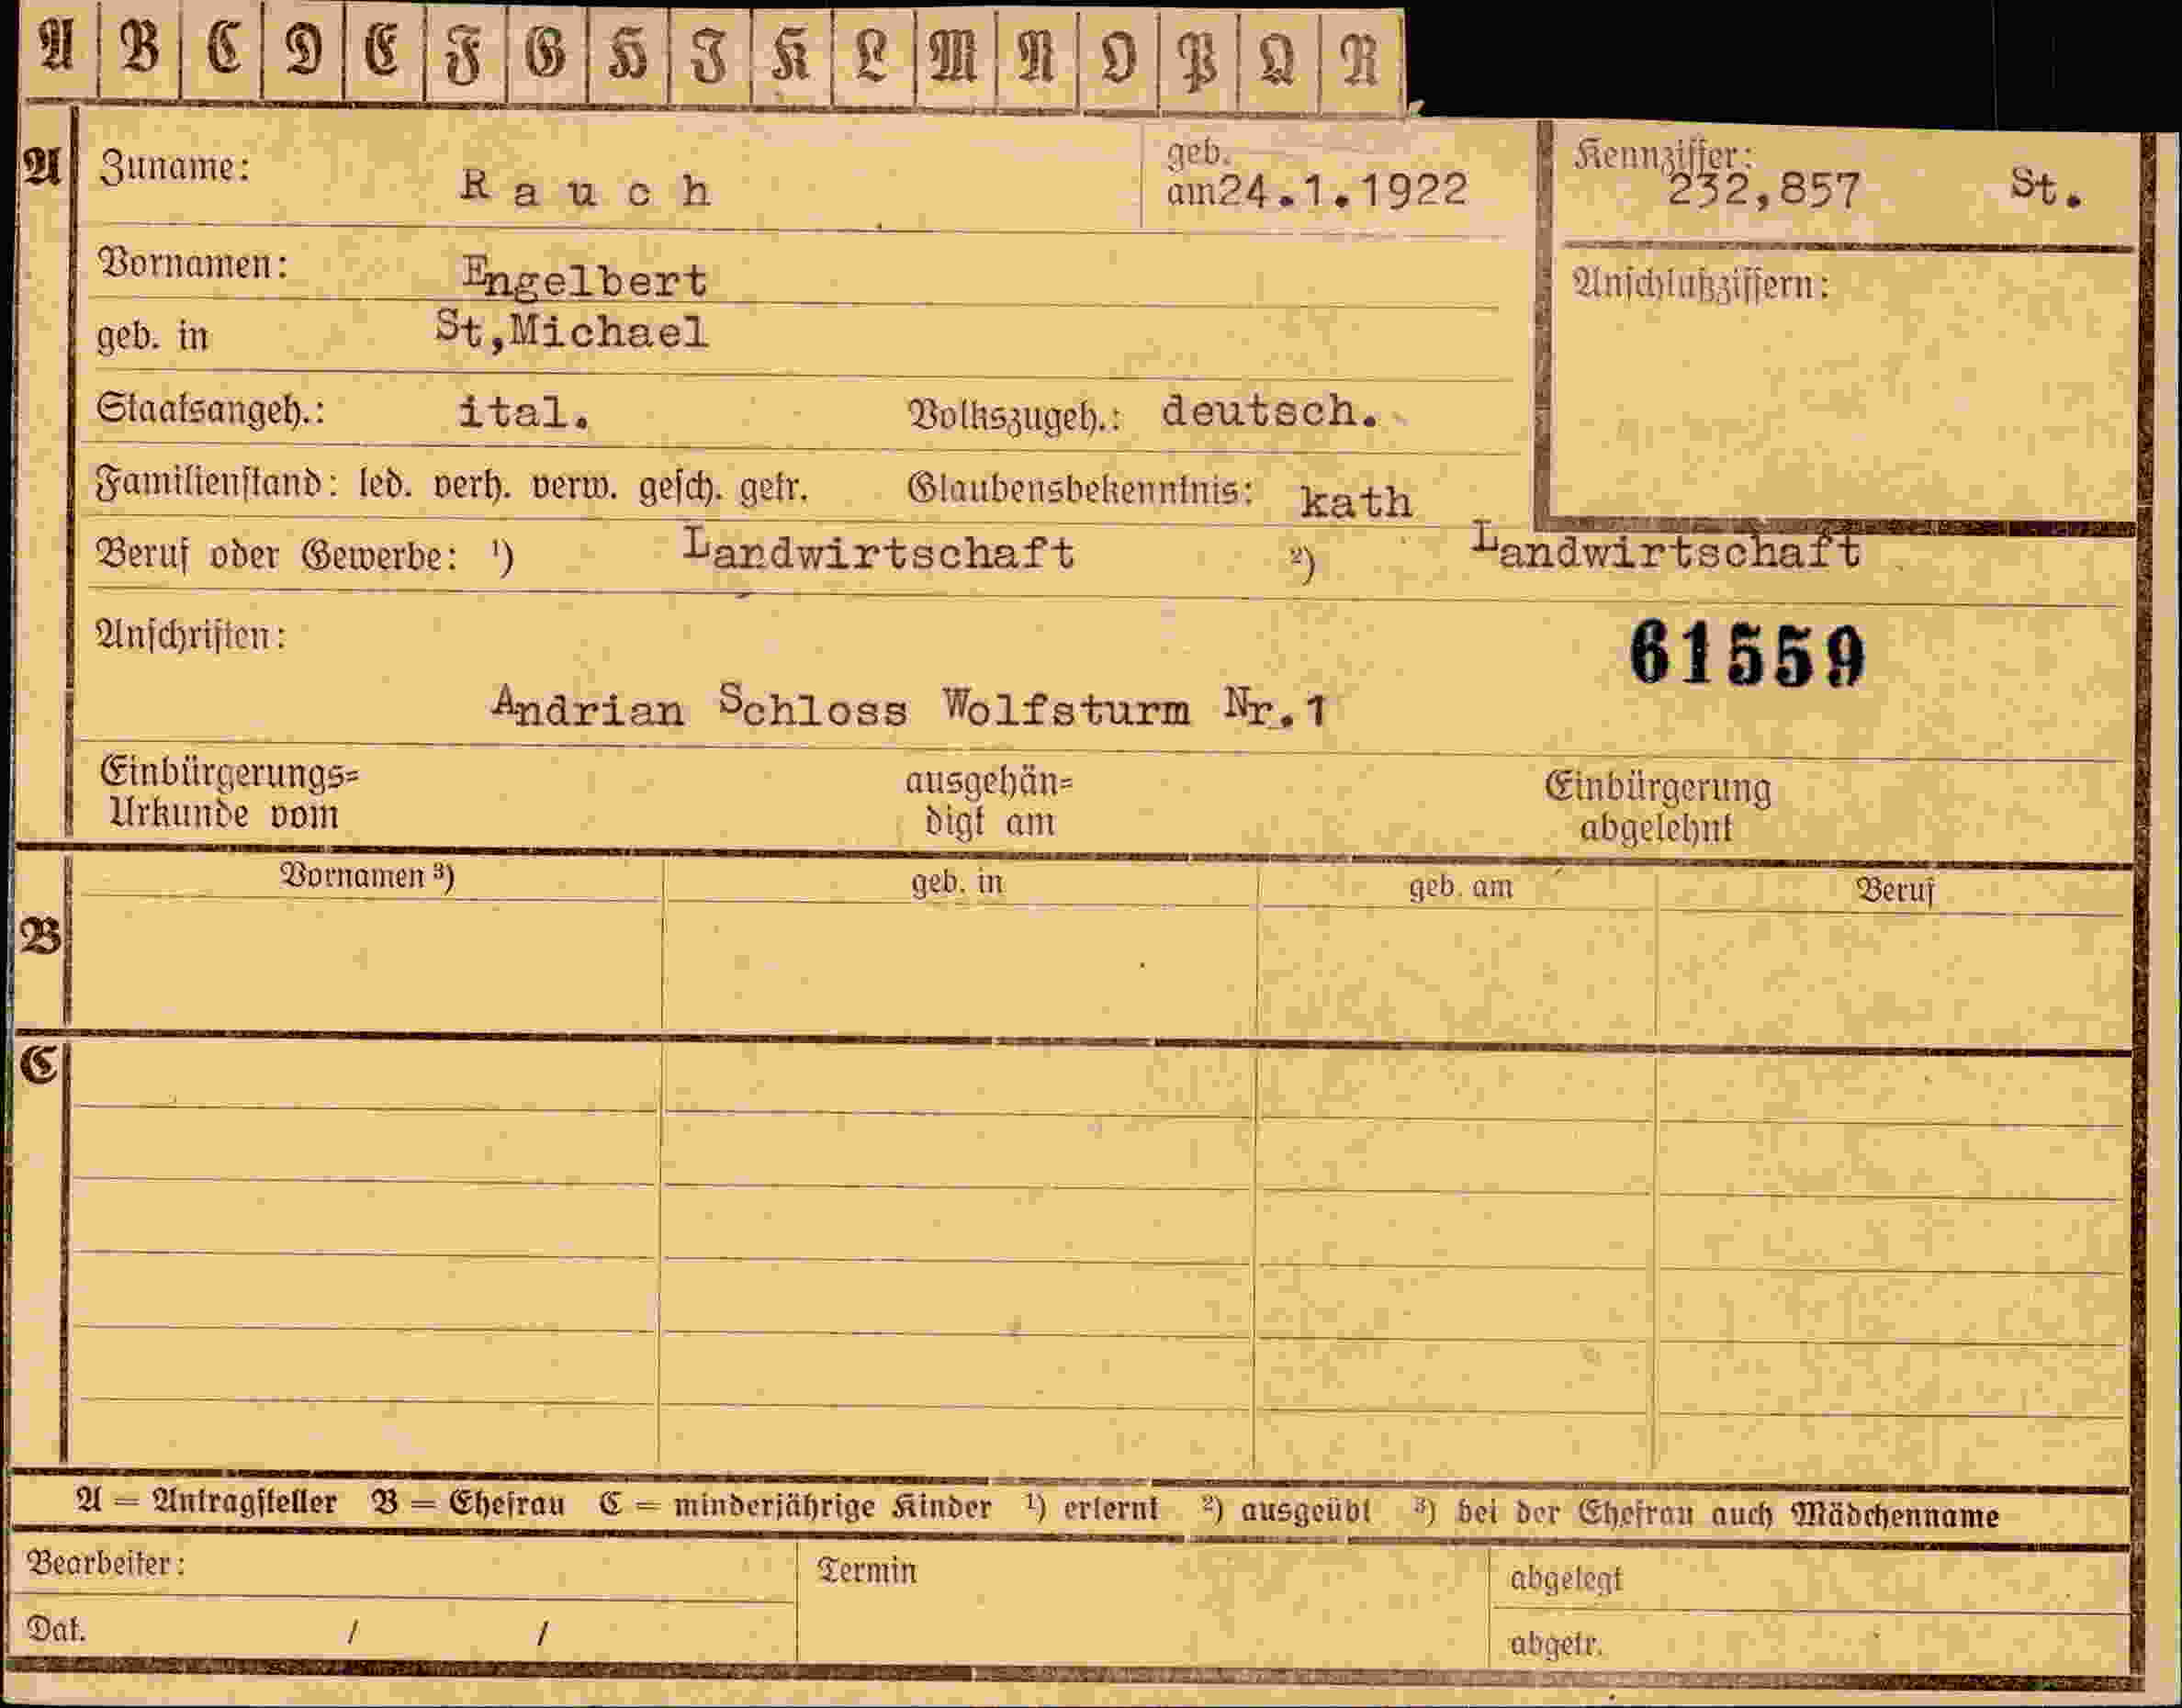 A B C D E F G H I K L M N O P Q R
A Zuname: Rauch geb. am 24.1.1922 Kennziffer: 232,857 St.
Vornamen: Engelbert Anschlußziffern:
geb. in St,Michael
Staatsangeh.: ital. Volkszugeh.: deutsch.
Familienstand: led. verh. verw. gesch. getr. Glaubensbekenntnis: kath
Beruf oder Gewerbe: ¹) Landwirtschaft ²) Landwirtschaft
Anschriften: 61559
Andrian Schloss Wolfsturm Nr.1
Einbürgerungs= ausgehän= Einbürgerung
Urkunde vom digt am abgelehnt
B Vornamen ³) geb. in geb. am Beruf
C
A = Antragsteller B = Ehefrau C = minderjährige Kinder ¹) erlernt ²) ausgeübt ³) bei der Ehefrau auch Mädchenname
Bearbeiter: Termin abgelegt
Dat. / / abgetr.